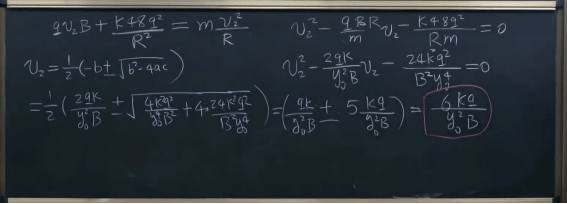 qv₂B + K·8q²/R² = m v₂²/R
v₂² - qBR/m v₂ - K·8q²/Rm = 0
v₂ = 1/2(-b ± √b²-4ac)
v₂² - 2qK/y₀²B v₂ - 24K²q²/B²y₀⁴ = 0
= 1/2(2qK/y₀²B ± √4K²q²/y₀⁴B² + 4·24K²q²/B²y₀⁴) = (qK/y₀²B ± 5Kq/y₀²B) = 6Kq/y₀²B